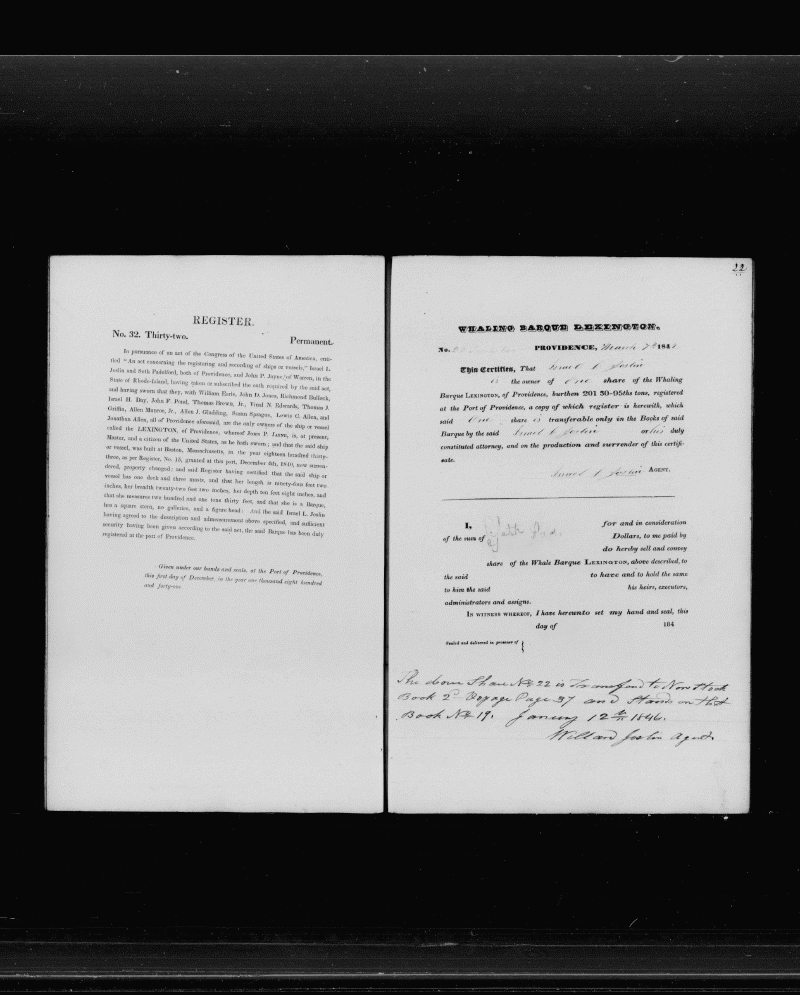 REGISTER.
No. 32. Thirty-two.
Permanent.
In pursuance of an act of the Congress of the United States of America, enti-
tled "An act concerning the registering and recording of ships or vessels," Israel L.
Joslin and Seth Padelford, both of Providence, and John P. Jayne, of Warren, in the
State of Rhode-Island, having taken or subscribed the oath required by the said act,
and having sworn that they, with William Earle, John D. Jones, Richmond Bullock,
Israel H. Day, John F. Pond, Thomas Brown, Jr., Vinal N. Edwards, Thomas J.
Griffin, Allen Munroe, Jr., Allen J. Gladding, Susan Sprague, Lewis C. Allen, and
Jonathan Allen, all of Providence aforesaid, are the only owners of the ship or vessel
called the LEXINGTON, of Providence, whereof Jones P. is, at present,
Master, and a citizen of the United States, as he hath sworn; and that the said ship
or vessel, was built at Boston, Massachusetts, in the year eighteen hundred thirty-
three, as per Register, No. 15, granted at this port, December 8th, 1840, now surren-
dered, property changed; and said Register having certified that the said ship or
vessel has one deck and three masts, and that her length is ninety-four feet two
inches, her breadth twenty-two feet two inches, her depth ten feet eight inches, and
that she measures two hundred and one tons thirty feet, and that she is a Barque,
has a square stern, no galleries, and a figure head: And the said Israel L. Joslin
having agreed to the description and admeasurement above specified, and sufficient
security having been given according to the said act, the said Barque has been duly
registered at the port of Providence.
Given under our hands and seals, at the Port of Providence,
this first day of December, in the year one thousand eight hundred
and forty-one.
22
WHALING BARQUE LEXINGTON.
No. PROVIDENCE, March 7th 184
This Certifies, That Israel L Joslin
is the owner of One share of the Whaling
Barque LEXINGTON, of Providence, burthen 201 30-95ths tons, registered
at the Port of Providence, a copy of which register is herewith, which
said One share is transferable only in the Books of said
Barque by the said Israel L Joslin or his duly
constituted attorney, and on the production and surrender of this certifi-
cate.
Israel L Joslin AGENT.
I, for and in consideration
of the sum of Dollars, to me paid by
do hereby sell and convey
share of the Whale Barque LEXINGTON, above described, to
the said to have and to hold the same
to him the said his heirs, executors,
administrators and assigns.
IN WITNESS WHEREOF, I have hereunto set my hand and seal, this
day of 184
Sealed and delivered in presence of
The above Share No 22 is Transferred to New Stock
Book 2d Voyage Page 37 and Stands on that
Book No 19. January 12th 1846.
Willard Joslin Agent